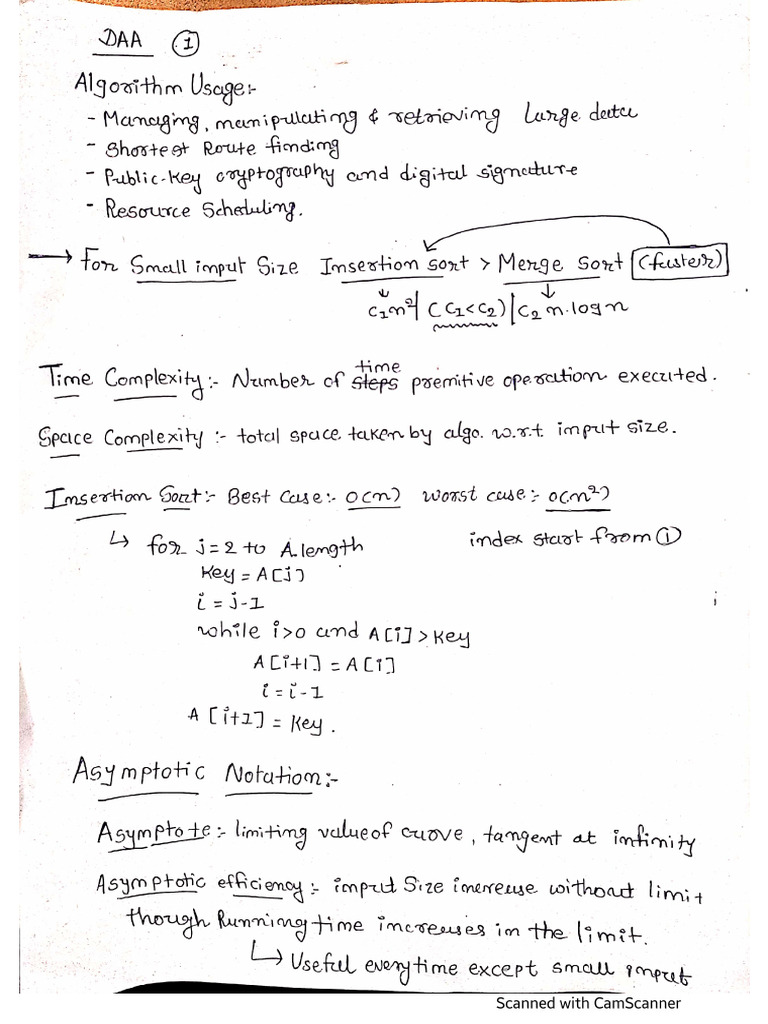 DAA ①
Algorithm Usage:-
- Managing, manipulating & retrieving large data
- Shortest Route finding
- Public-key cryptography and digital signature
- Resource Scheduling.
→ For Small input Size Insertion sort > Merge Sort (faster)
c₁n² | (c₁<c₂) | c₂ n.log n
time
Time Complexity:- Number of steps premitive operation executed.
Space Complexity:- total space taken by algo. w.r.t. input size.
Insertion Sort:- Best Case:- O(n) worst case:- O(n²)
↳ for j=2 to A.length index start from ①
Key = A[j]
i = j-1
while i>0 and A[i]>Key
A[i+1] = A[i]
i = i-1
A[i+1] = Key.
Asymptotic Notation:-
Asymptote:- limiting value of curve, tangent at infinity
Asymptotic efficiency:- input Size increase without limit
though Running time increases in the limit.
↳ Useful everytime except small input
Scanned with CamScanner